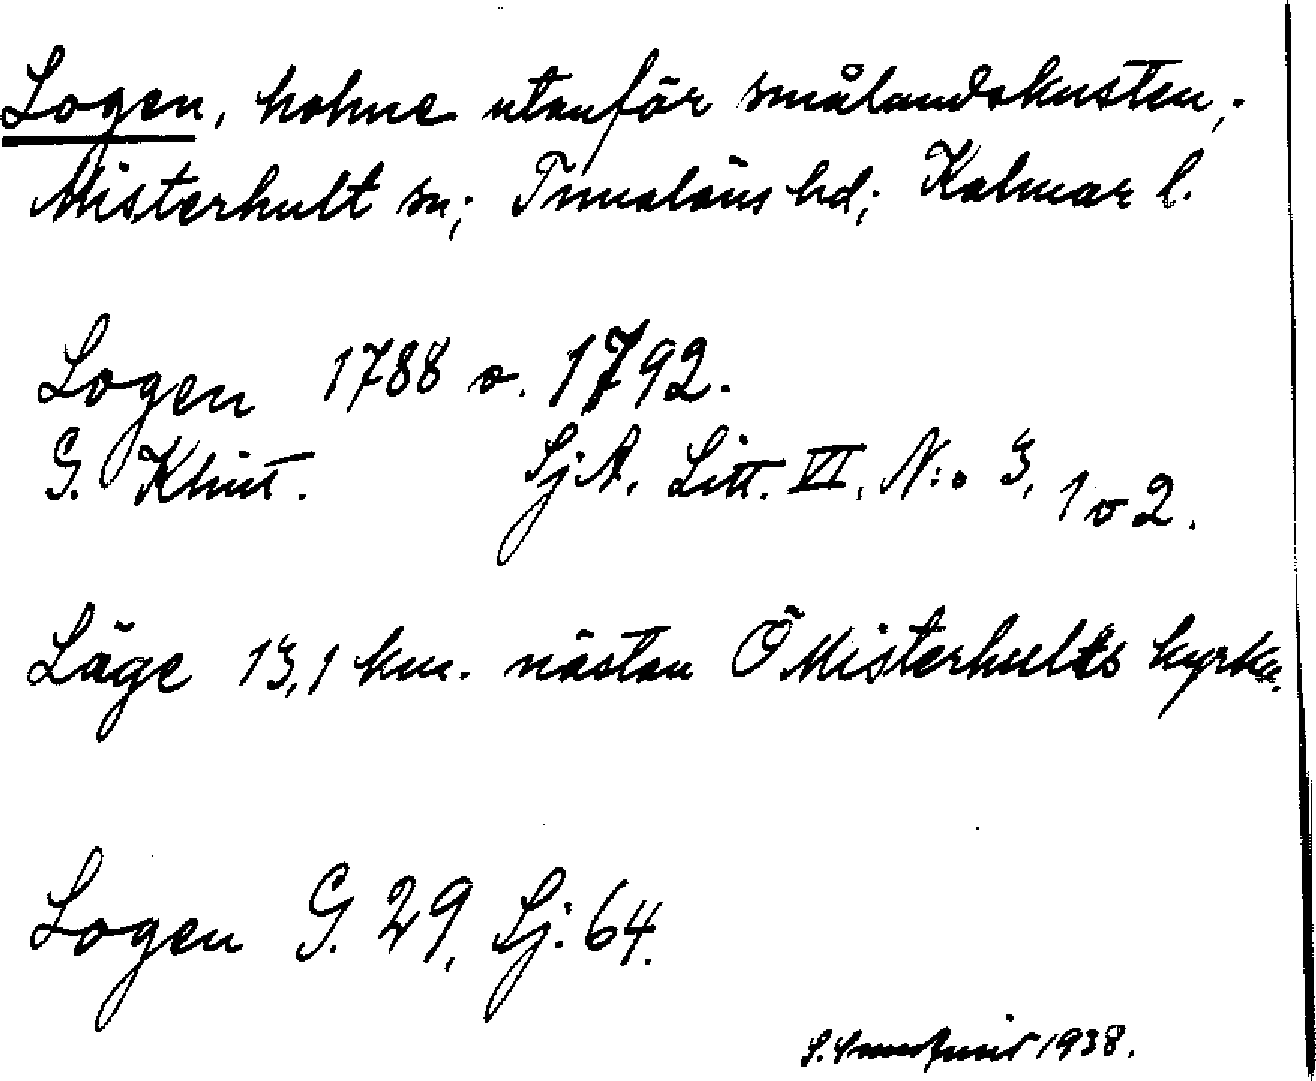 Logen, holme utanför smålandskusten;
Misterhult sn; Tunaläns hd; Kalmar l.
Logen 1788 o. 1792.
G. Klint. Sj.A. Litt. VI, N:o 3, 1 o 2.
Läge 13,1 km. nästan Ö Misterhults kyrka.
Logen G. 29, Sj. 64.
1938.